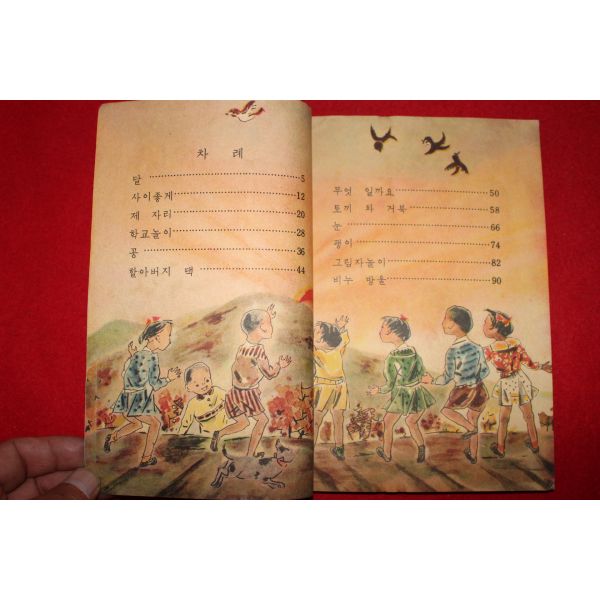 차 례
달 5
사이좋게 12
제 자리 20
학교놀이 28
공 36
할아버지 댁 44
무엇 일까요 50
토끼 와 거북 58
눈 66
팽이 74
그림자놀이 82
비누 방울 90